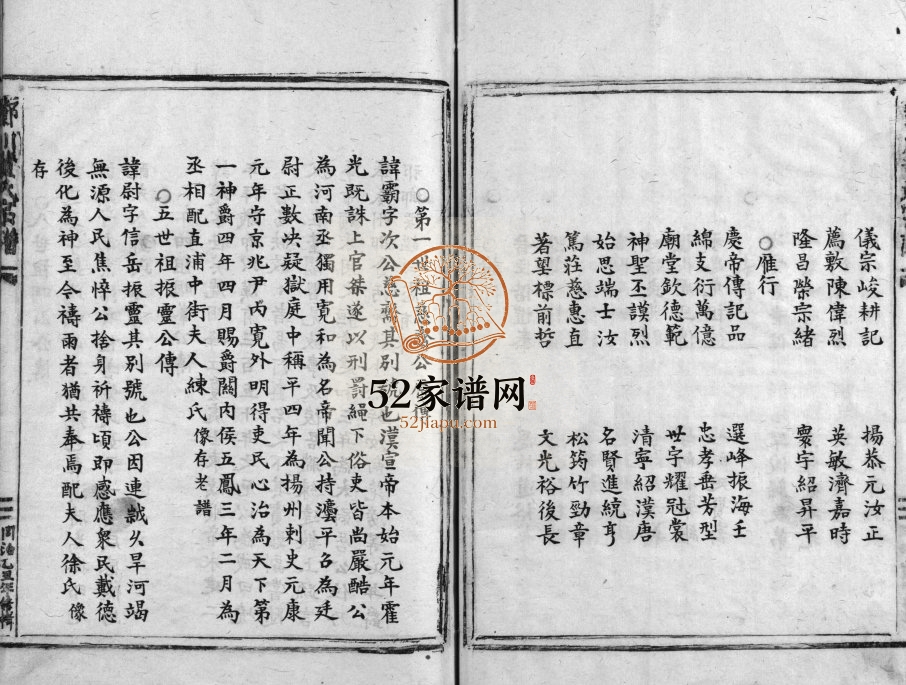 儀宗峻耕記 揚恭元汝正
薦敷陳偉烈 英敏濟嘉時
隆昌榮宗緒 霥宇紹昇平
○雁行
慶帝傳記品 選峰振海壬
綿支衍萬億 忠孝岳芳型
廟堂欽德範 世字耀冠裳
神聖丕謨烈 清寧紹漢唐
始思端士汝 名賢進統亨
篤莊慈惠直 松筠竹勁章
著朢標前哲 文光裕後長
○第一世祖慈公
諱霸字次公慈其別也漢宣帝本始元年霍
光既誅上官桀遂以刑罰繩下俗吏皆尚嚴酷公
為河南丞獨用寬和為名帝聞公持灋平召為廷
尉正數决疑獄庭中稱平四年為揚州刺史元康
元年守京兆尹内寬外明得吏民心治為天下第
一神爵四年四月賜爵關内侯五鳳三年二月為
丞相配直浦中街夫人練氏像存老譜
○五世祖振靈公傳
諱尉字信岳振靈其別號也公因連越久旱河竭
無源人民焦悴公捨身祈禱頃即感應衆民戴德
後化為神至今禱雨者猶共奉焉配夫人徐氏像
存
52家谱网
52jiapu.com